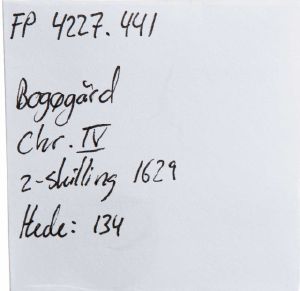 FP 4227.441
Bogøgård
Chr. IV
2-skilling 1629
Hede: 134